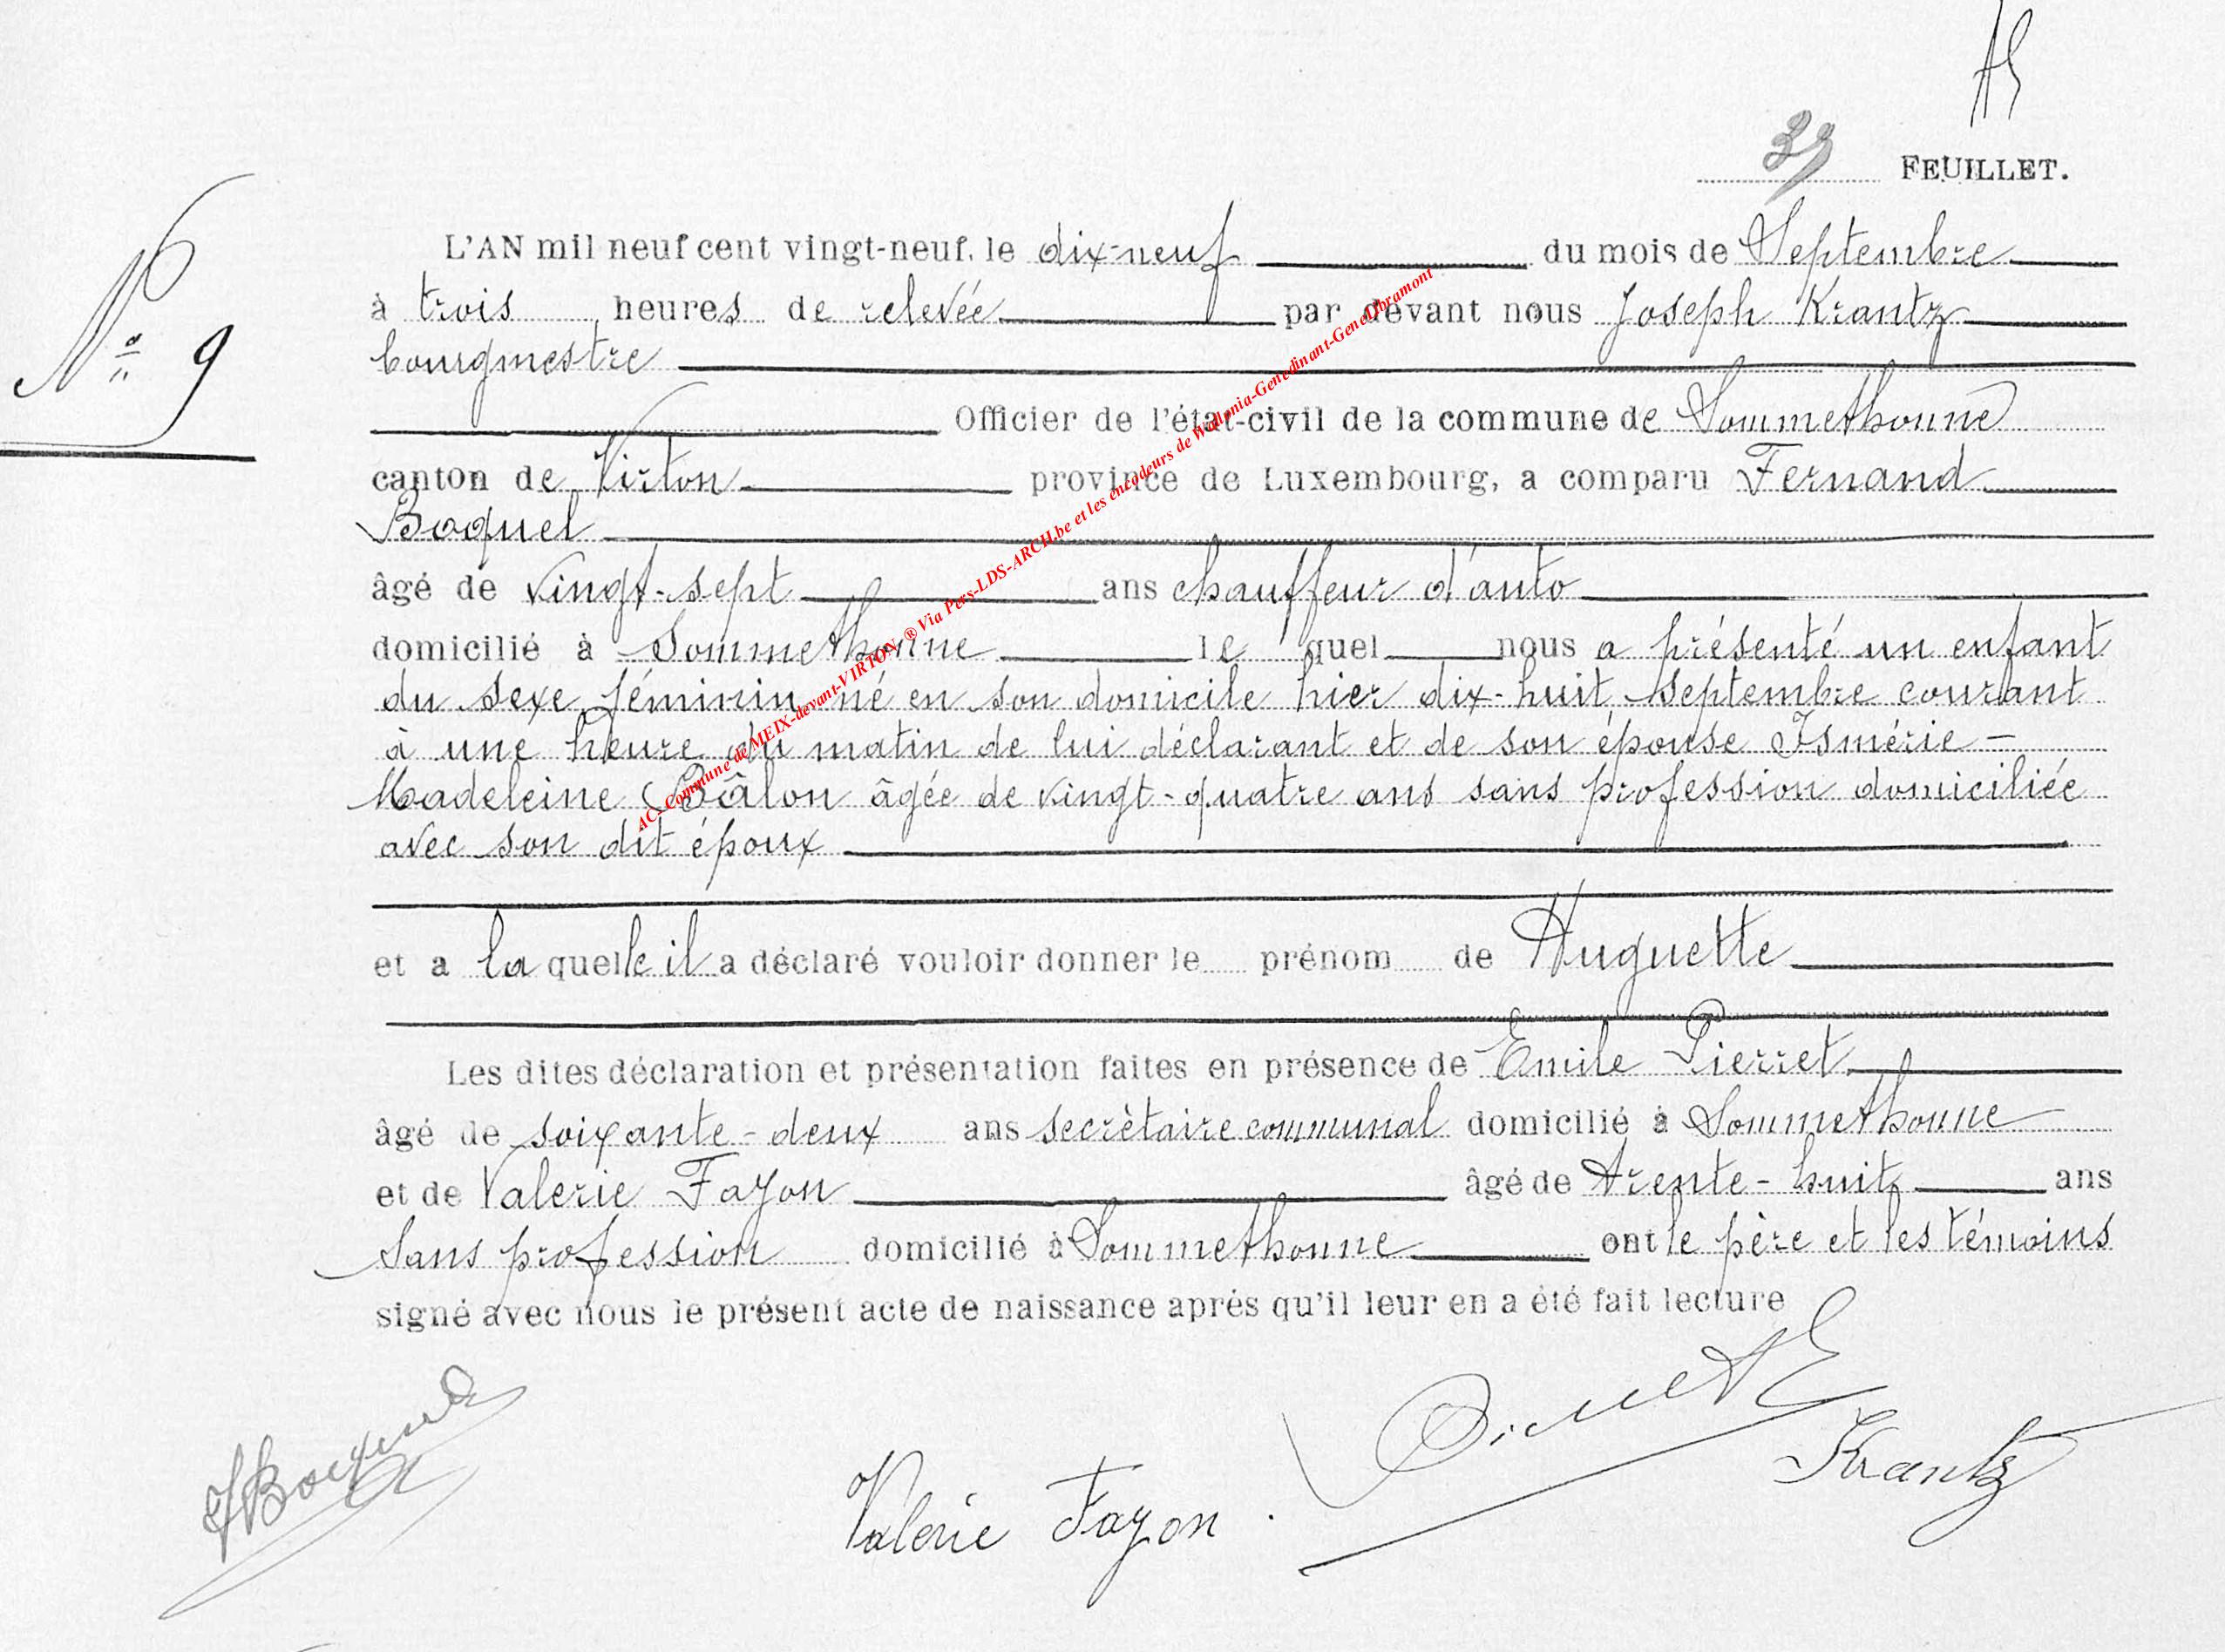 39 FEUILLET.
N° 9
L'AN mil neuf cent vingt-neuf, le dix-neuf du mois de Septembre
à trois heures de relevée par devant nous Joseph Krantz
bourgmestre
Officier de l'état-civil de la commune de Sommethonne
canton de Virton province de Luxembourg, a comparu Fernand
Bocquel
âgé de vingt-sept ans chauffeur d'auto
domicilié à Sommethonne le quel nous a présenté un enfant
du sexe féminin né en son domicile hier dix-huit septembre courant
à une heure du matin de lui déclarant et de son épouse Ismérie-
Madeleine Bâlon âgée de vingt-quatre ans sans profession domiciliée
avec son dit époux
et a laquelle il a déclaré vouloir donner le prénom de Huguette
Les dites déclaration et présentation faites en présence de Emile Pierret
âgé de soixante-deux ans secrètaire communal domicilié à Sommethonne
et de Valerie Fayon âgé de trente-huit ans
Sans profession domicilié à Sommethonne ont le père et les témoins
signé avec nous le présent acte de naissance après qu'il leur en a été fait lecture
Krantz
Valerie Fayon.
AC-Commune de MEIX-devant-VIRTON ® Via Pers-LDS-ARCH.be et les encodeurs de Wallonia-Genedinant-Genealibramont